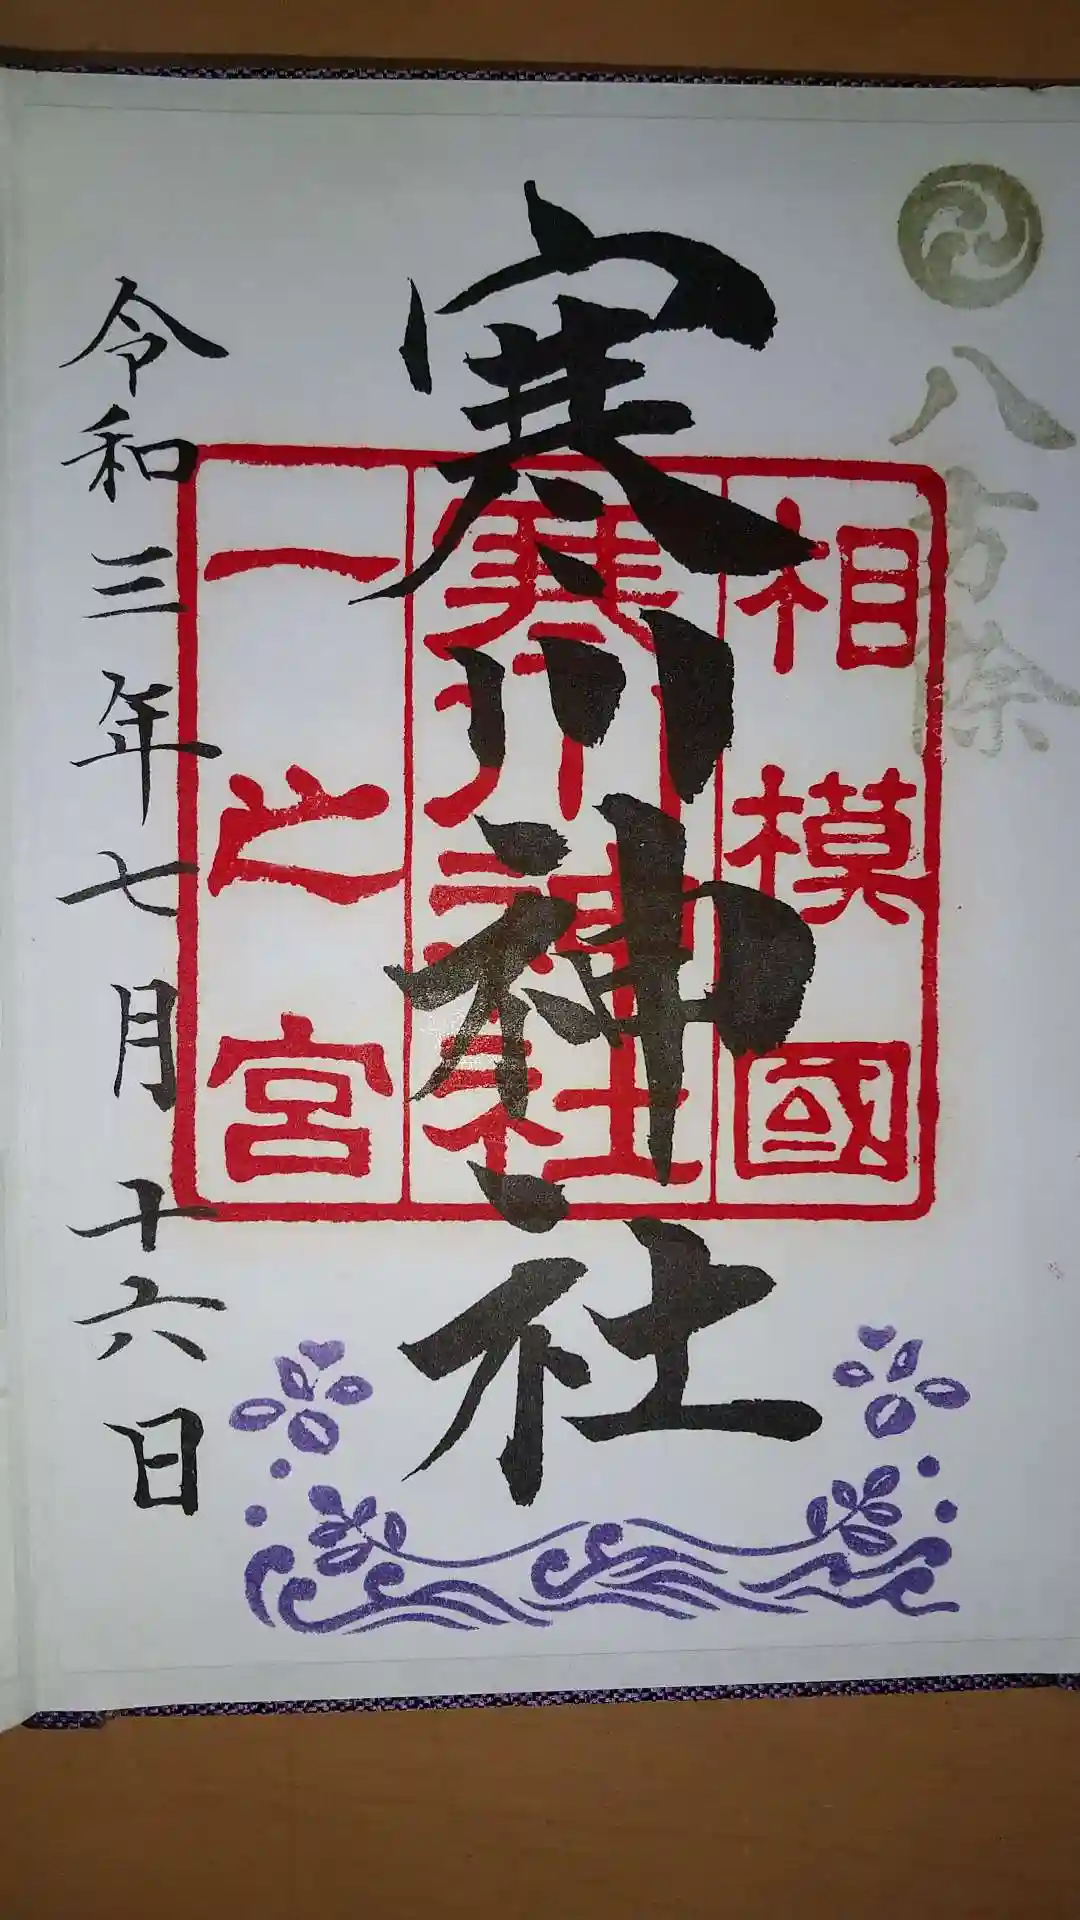 八方除
寒川神社
相模國
寒川神社
一之宮
令和三年七月十六日